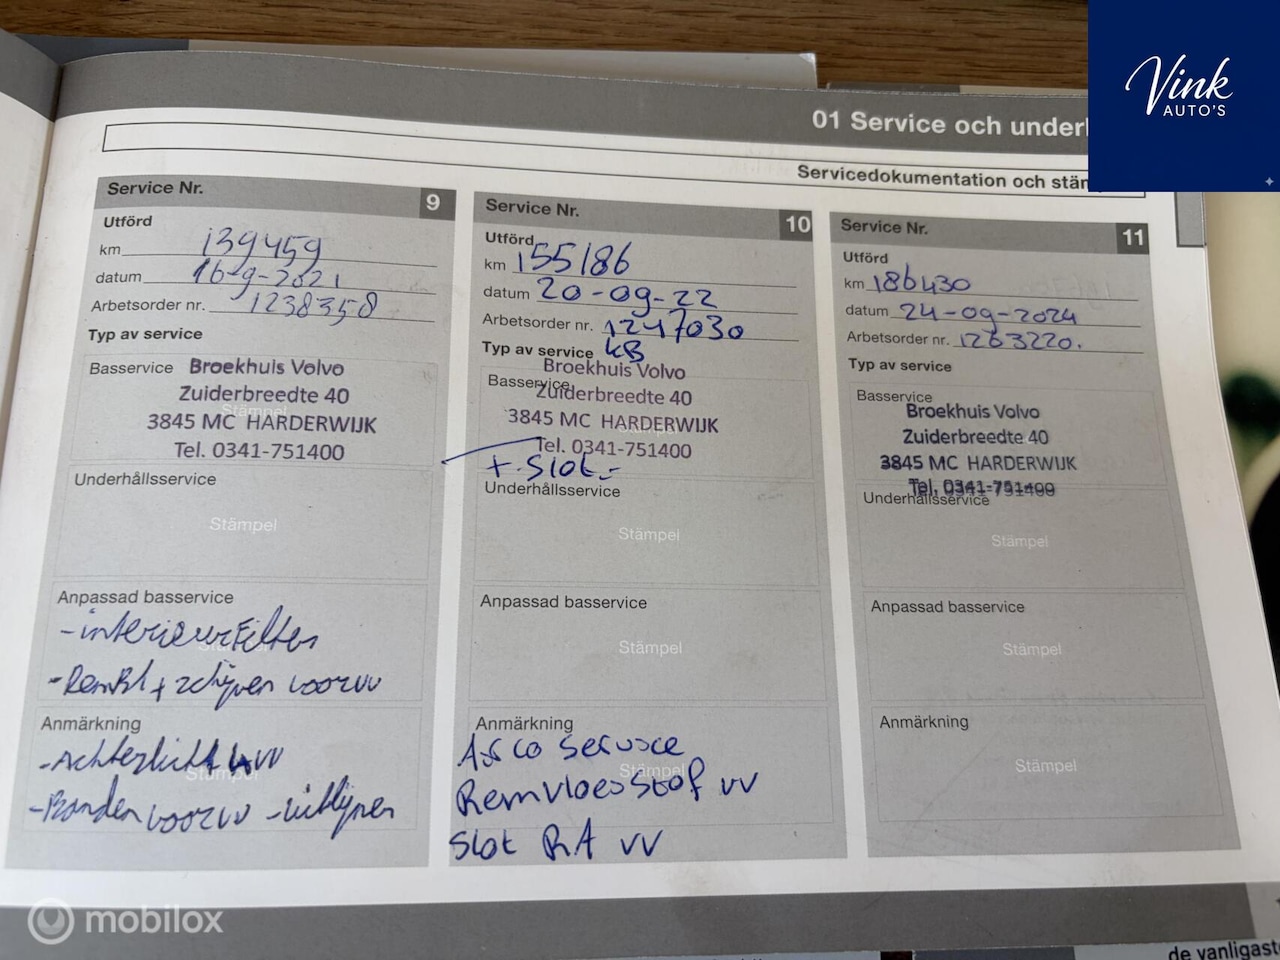 Vink
AUTO'S
01 Service och underh
Servicedokumentation och stäm
Service Nr. 9
Utförd
km 139459
datum 16-9-2021
Arbetsorder nr. 1238358
Typ av service
Basservice
Broekhuis Volvo
Zuiderbreedte 40
Stämpel
3845 MC HARDERWIJK
Tel. 0341-751400
Underhållsservice
Stämpel
Anpassad basservice
- interieurfilter
Stämpel
- Rembl + schijven voor vv
Anmärkning
- Achterlicht vv
Stämpel
- Banden voor vv - uitlijnen
Service Nr. 10
Utförd
km 155186
datum 20-09-22
Arbetsorder nr. 1247030
KB
Typ av service
Basservice
Broekhuis Volvo
Zuiderbreedte 40
3845 MC HARDERWIJK
Tel. 0341-751400
+ slot
Underhållsservice
Stämpel
Anpassad basservice
Stämpel
Anmärkning
Airco service
Stämpel
Remvloeistof vv
Slot RA vv
Service Nr. 11
Utförd
km 186430
datum 24-09-2024
Arbetsorder nr. 1263220.
Typ av service
Basservice
Broekhuis Volvo
Zuiderbreedte 40
3845 MC HARDERWIJK
Tel. 0341-751400
Underhållsservice
Stämpel
Anpassad basservice
Stämpel
Anmärkning
Stämpel
mobilox
de vanligaste